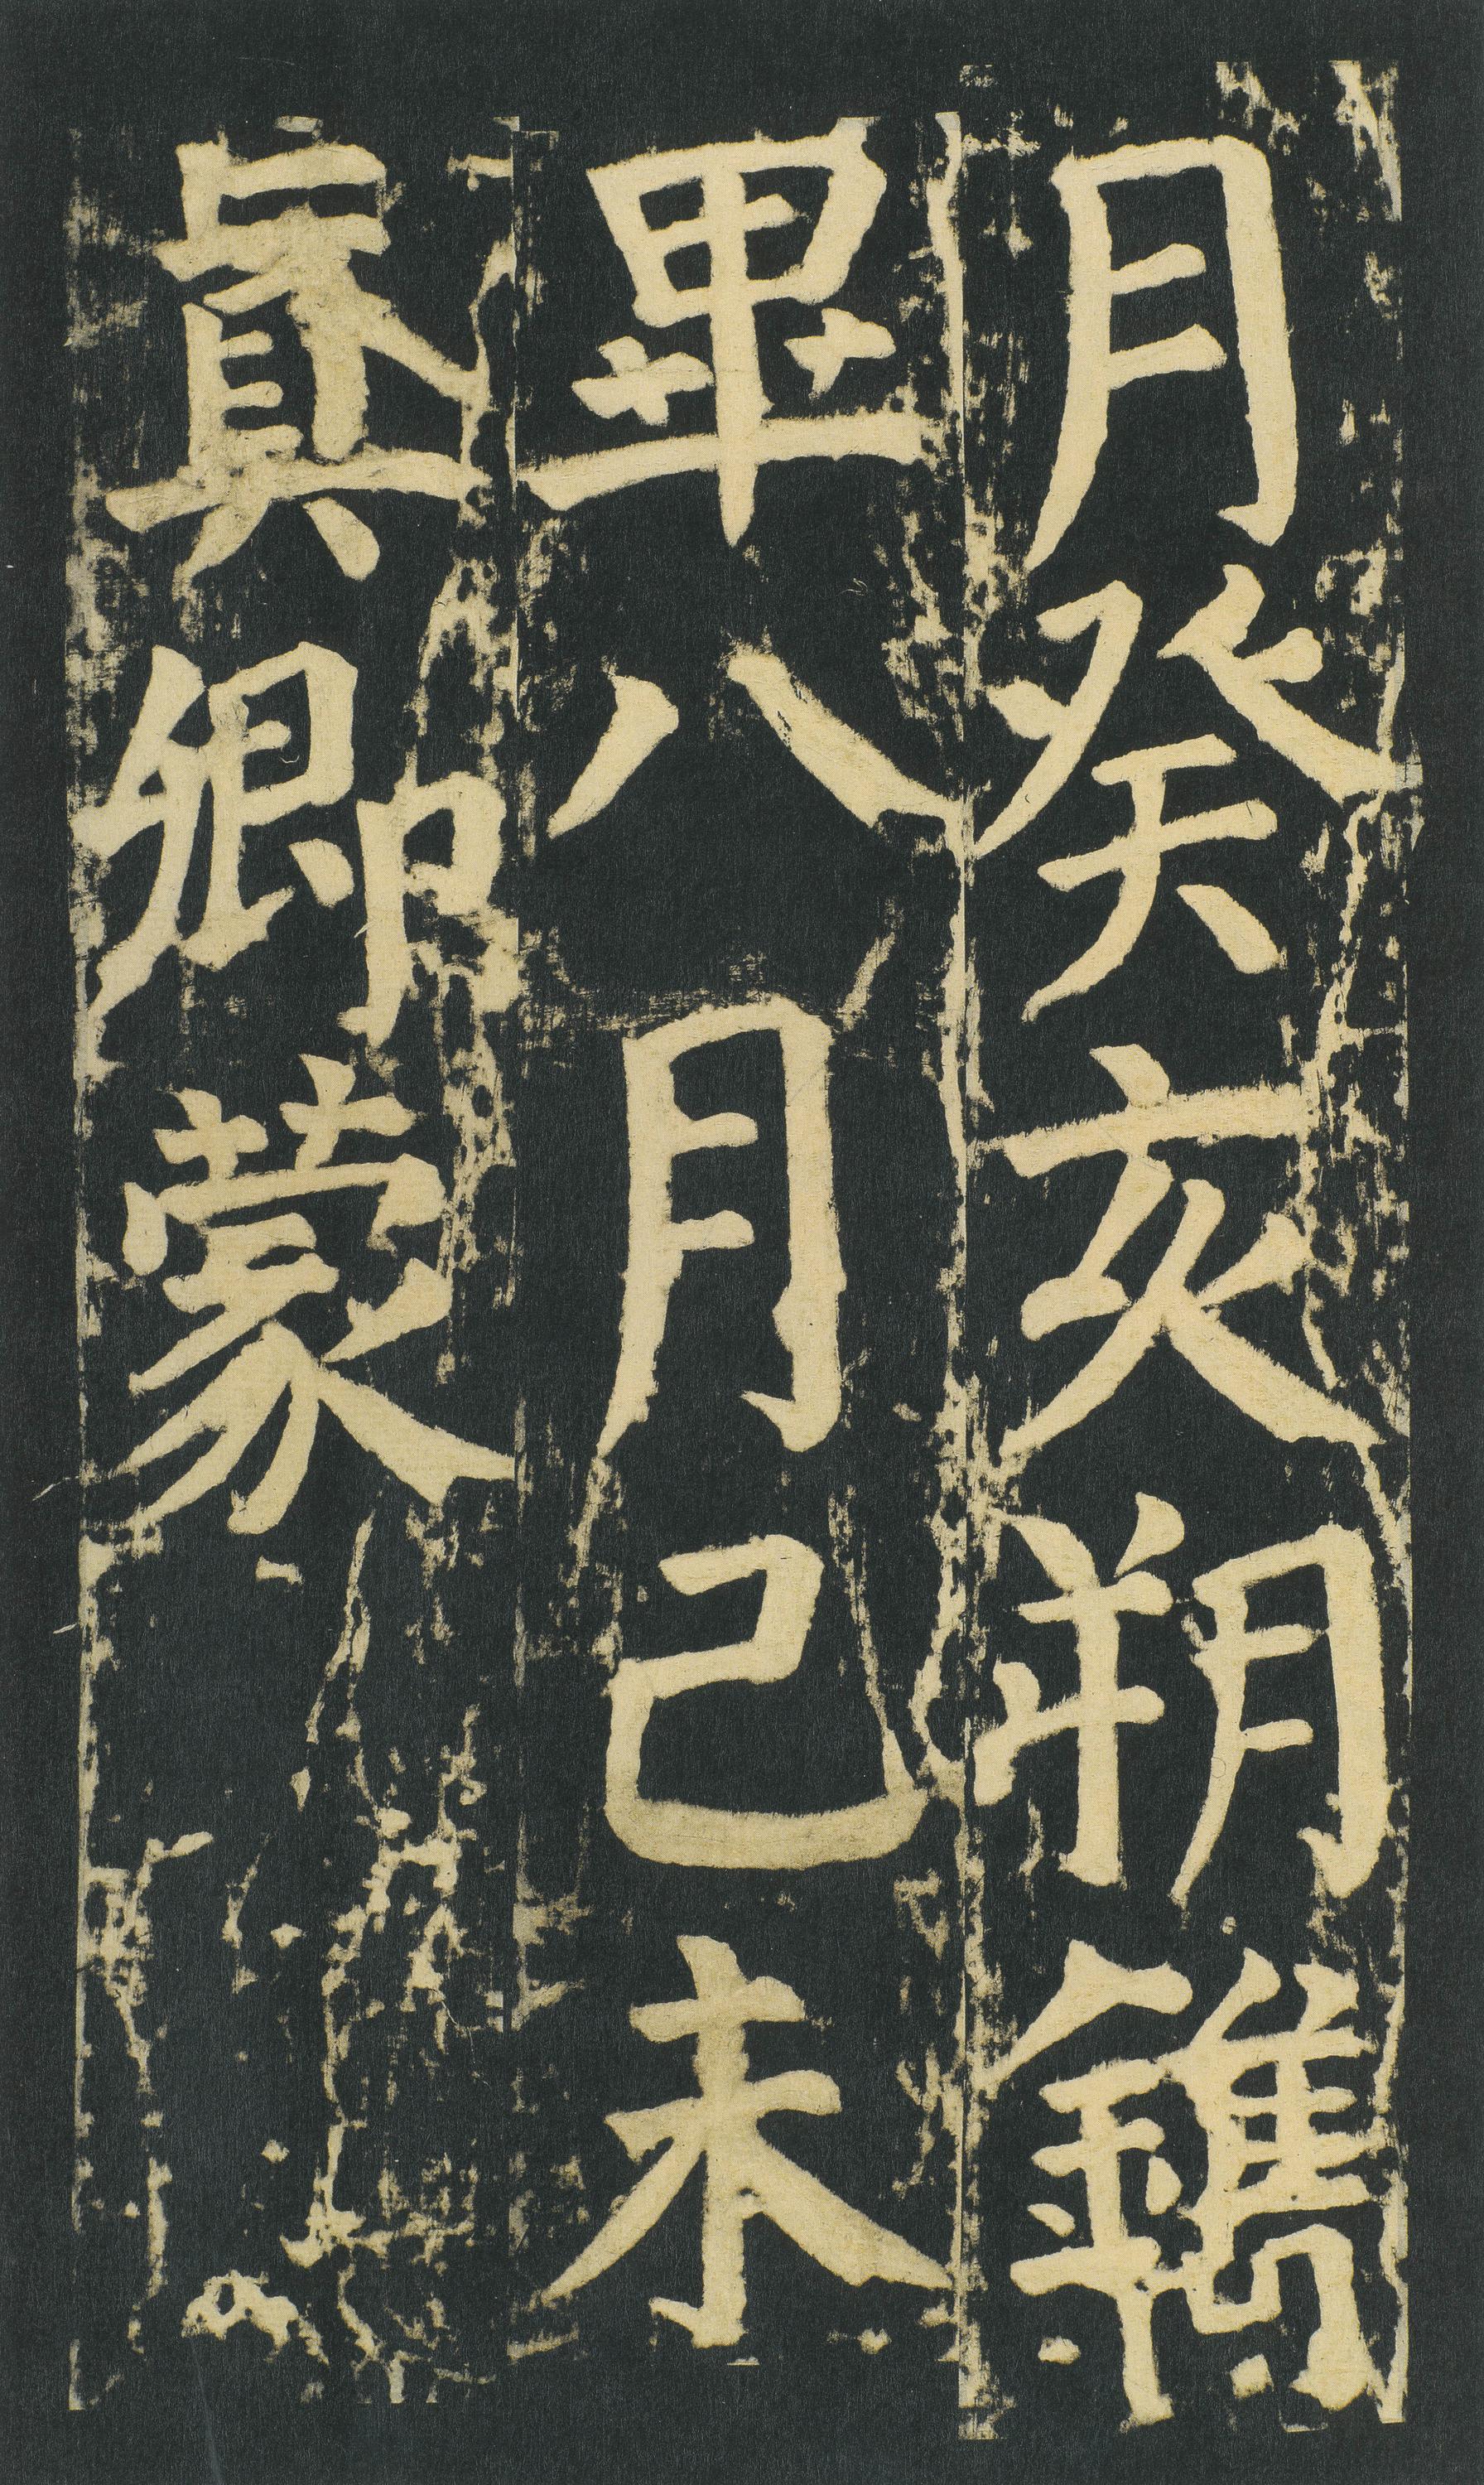 月癸亥朔鐫
畢八月己未
真卿蒙